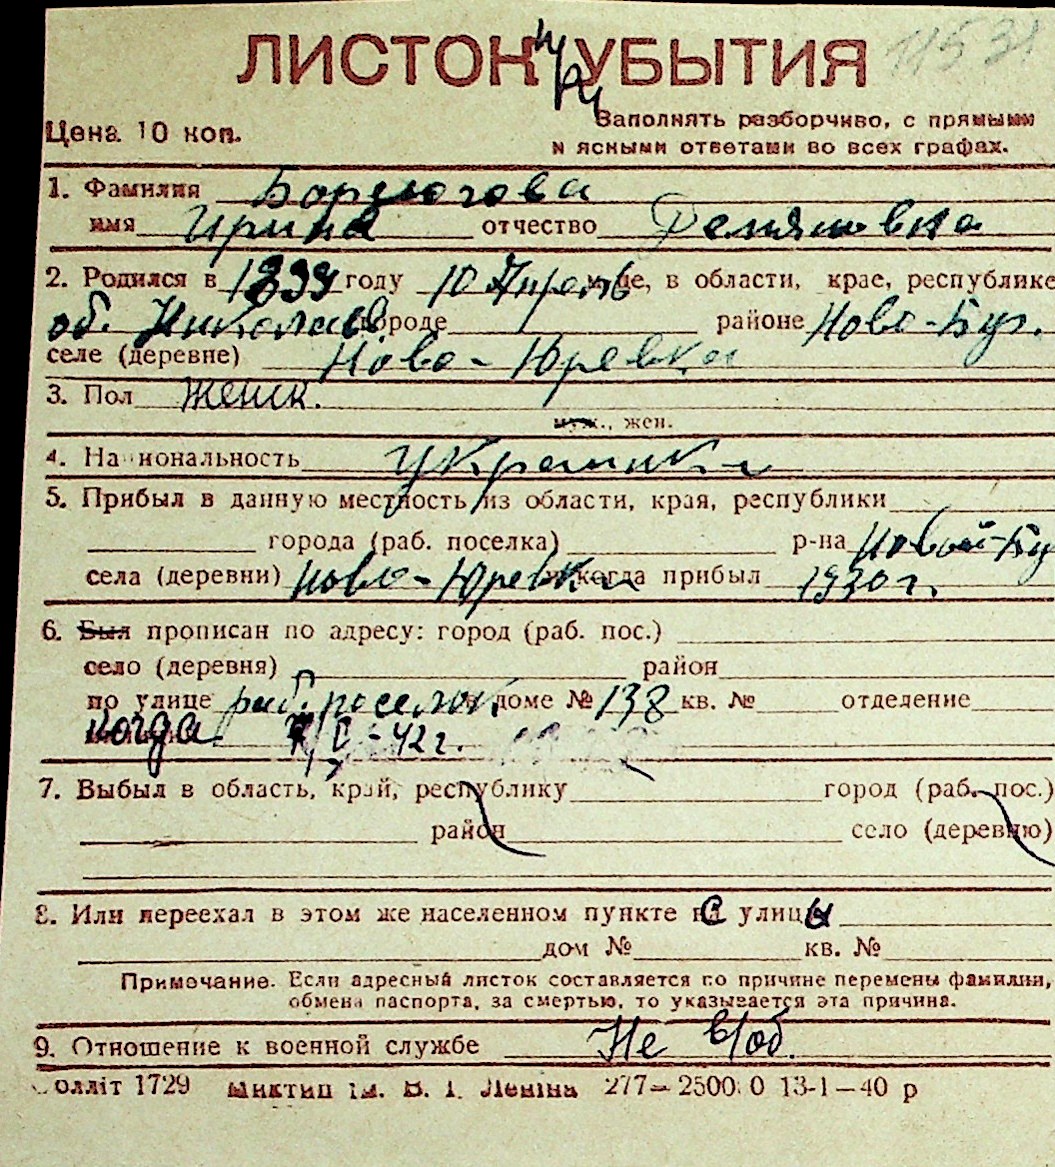 ЛИСТОК УБЫТИЯ 11531
Цена 10 коп.
Заполнять разборчиво, с прямыми
и ясными ответами во всех графах.
1. Фамилия Бордюгова
имя Ирина отчество Демяновна
2. Родился в 1899 году 10 Апрель м-це, в области, крае, республике
об. Николаев городе районе Ново-Буг.
селе (деревне) Ново-Юревка
3. Пол женск.
муж., жен.
4. Национальность украинка
5. Прибыл в данную местность из области, края, республики
города (раб. поселка) р-на Новый-Буг
села (деревни) Ново-Юревка когда прибыл 1930 г.
6. Был прописан по адресу: город (раб. пос.)
село (деревня) район
по улице раб. поселок доме № 138 кв. № отделение
когда 42 г.
7. Выбыл в область, край, республику город (раб. пос.)
район село (деревню)
8. Или переехал в этом же населенном пункте с улицы
дом № кв. №
Примечание. Если адресный листок составляется по причине перемены фамилии,
обмена паспорта, за смертью, то указывается эта причина.
9. Отношение к военной службе Не в/об.
Волліт 1729 Миктип ім. В. І. Леніна 277— 2500 0 13-1—40 р